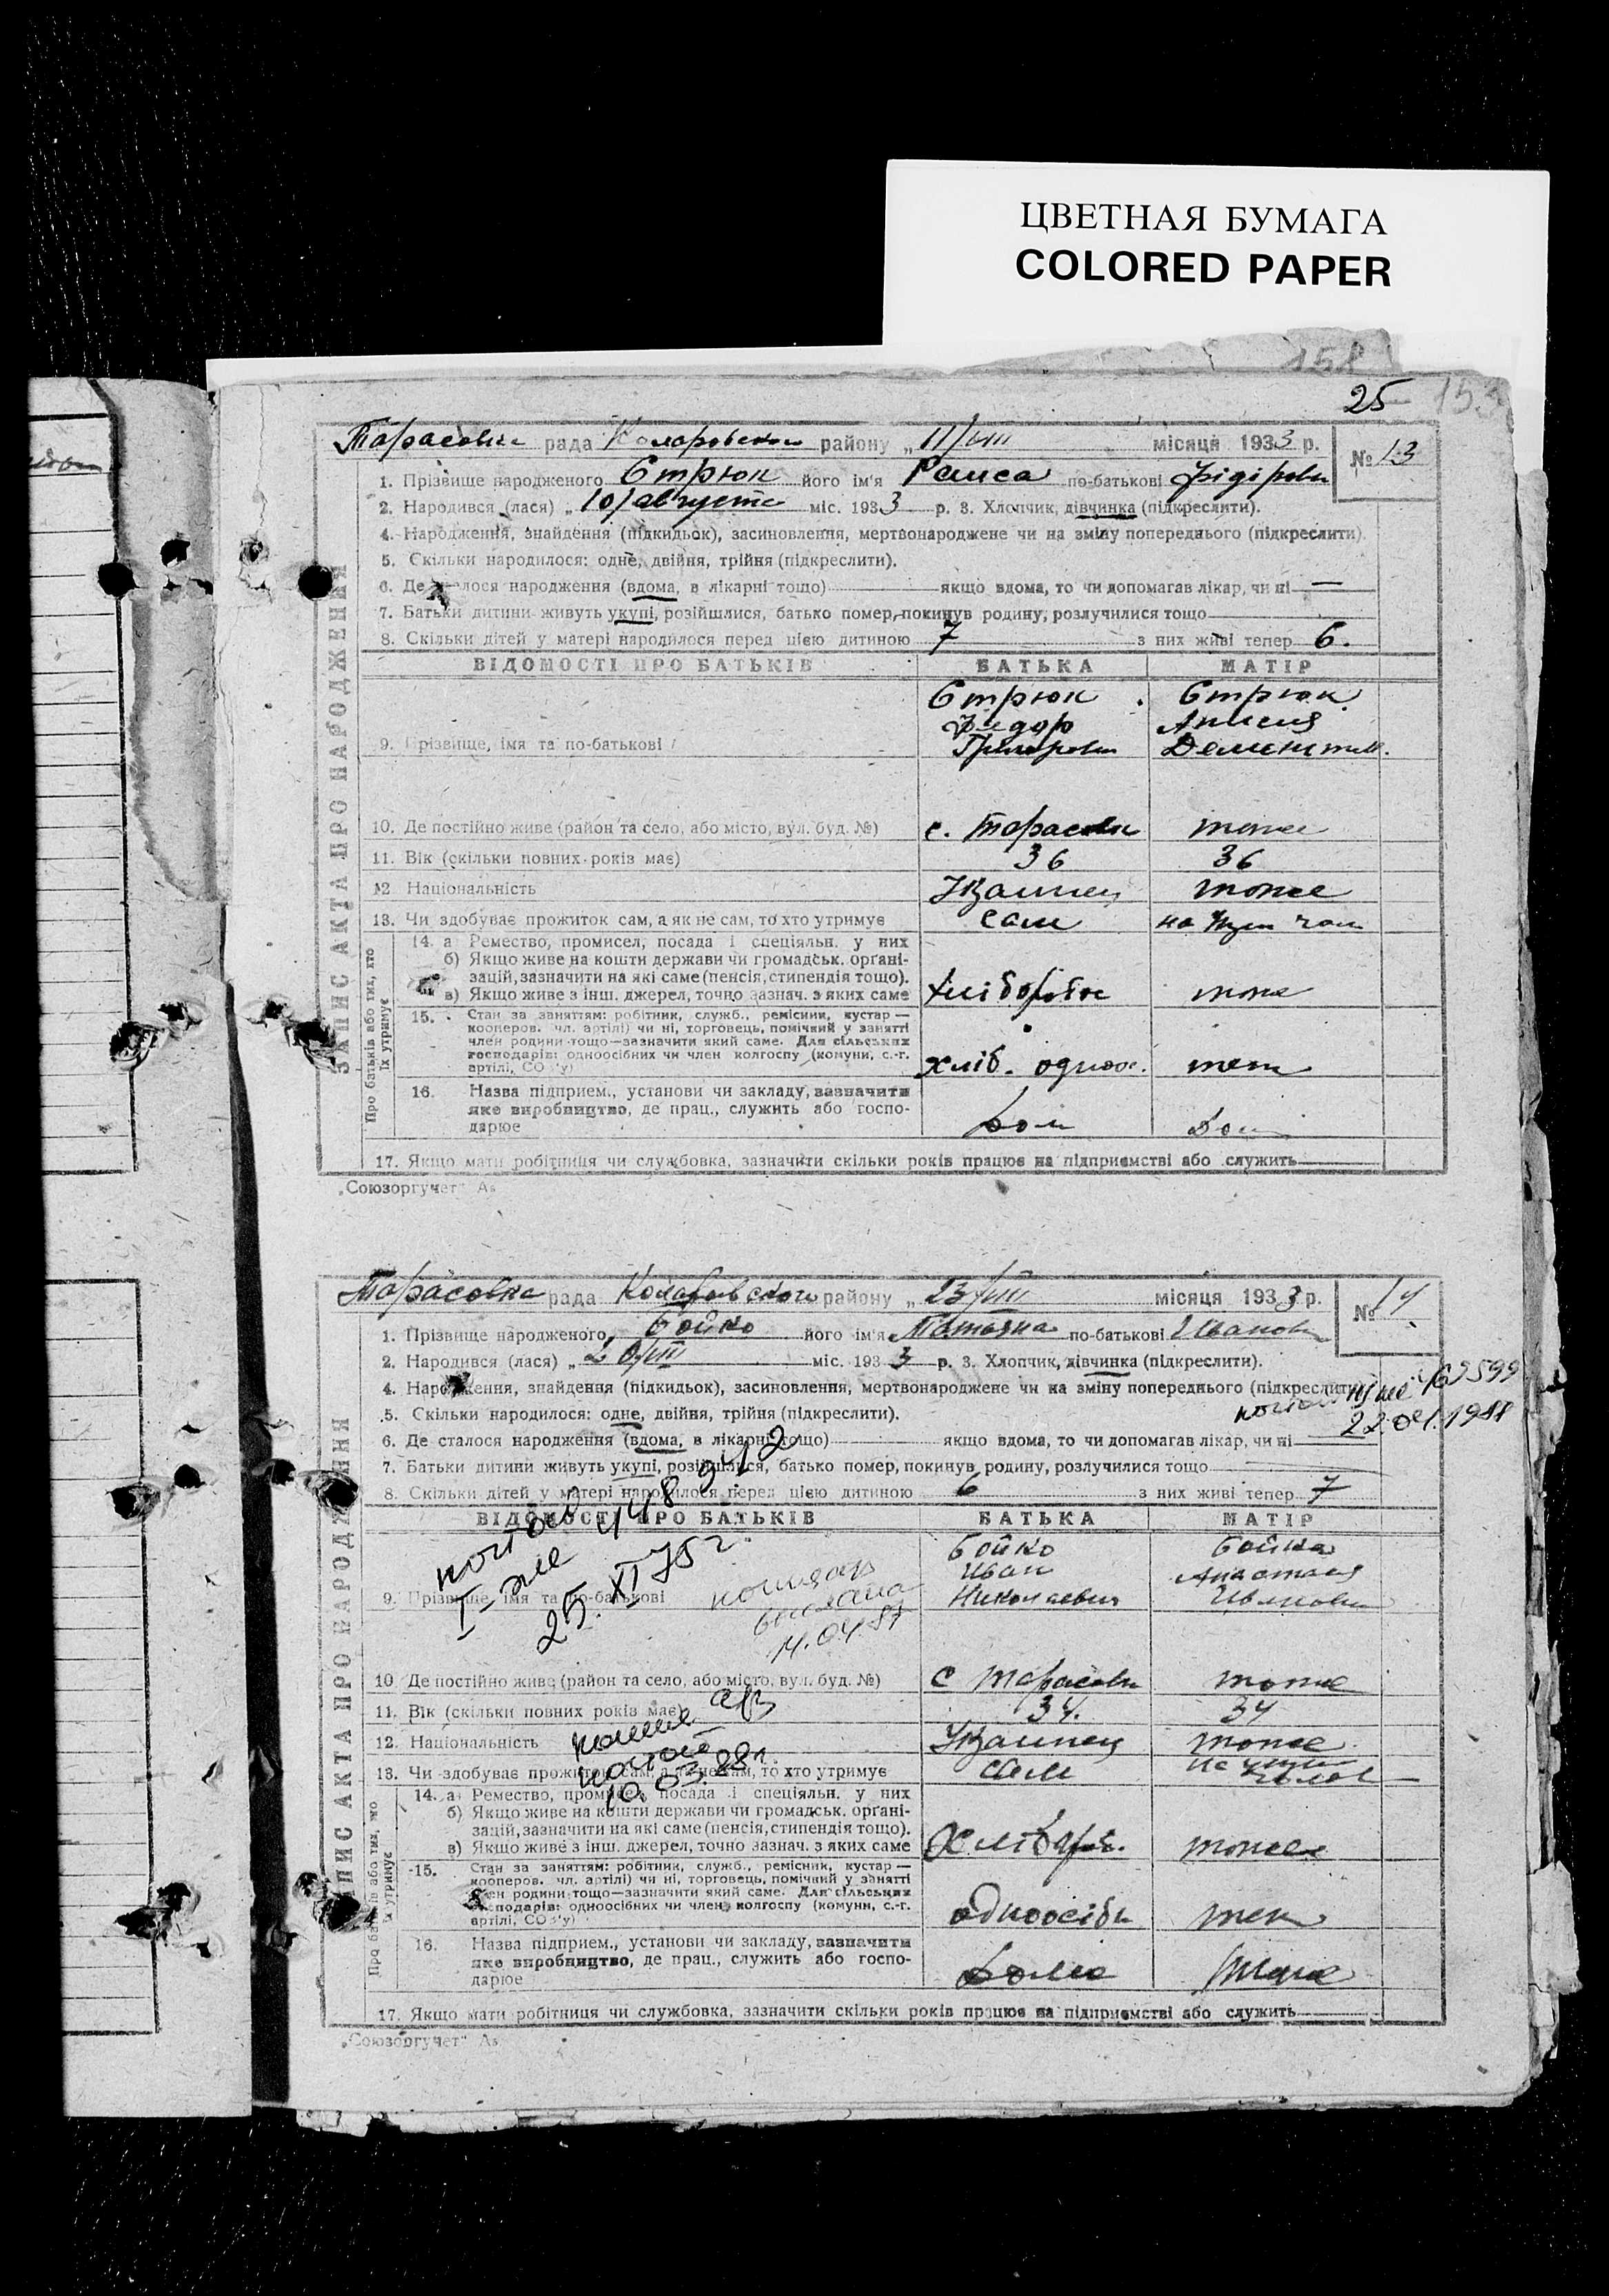 ЦВЕТНАЯ БУМАГА
COLORED PAPER
158
25 153
Тарасовка рада Коларовского району „ 11/VIII місяця 1933 р. № 13
1. Прізвище народженого Стрюк його ім'я Раиса по-батькові Фідіровн
2. Народився (лася) „ 10/августа міс. 1933 р. 3. Хлопчик, дівчинка (підкреслити).
4. Народження, знайдення (підкидьок), засиновлення, мертвонароджене чи на зміну попереднього (підкреслити)
5. Скільки народилося: одне, двійня, трійня (підкреслити).
6. Де лося народження (вдома, в лікарні тощо) якщо вдома, то чи допомагав лікар, чи ні —
7. Батьки дитини живуть укупі, розійшлися, батько помер, покинув родину, розлучилися тощо
8. Скільки дітей у матері народилося перед цією дитиною 7 з них живі тепер 6.
ЗАПИС АКТА ПРО НАРОДЖЕННЯ
ВІДОМОСТІ ПРО БАТЬКІВ БАТЬКА МАТІР
Стрюк Стрюк
Фидор
9. Прізвище, імя та по-батькові
10. Де постійно живе (район та село, або місто, вул. буд. №) с. Тарасовк тоже
11. Вік (скільки повних років має) 36 36
12. Національність тоже
13. Чи здобуває прожиток сам, а як не сам, то хто утримує сам на
Про батьків або тих, хто їх утримує
14. а Ремество, промисел, посада і спеціяльн. у них
б) Якщо живе на кошти держави чи громадськ. орґані-
зацій, зазначити на які саме (пенсія, стипендія тощо).
в) Якщо живе з інш. джерел, точно зазнач. з яких саме тоже
15. Стан за заняттям: робітник, служб., ремісник, кустар —
кооперов. чл. артілі) чи ні, торговець, помічний у занятті
член родини тощо—зазначити який саме. Для сільських
господарів: одноосібних чи член колгоспу (комуни, с.-г.
артілі, СО у) хліб. одноос.
16. Назва підприєм., установи чи закладу, зазначити
яке виробництво, де прац., служить або госпо-
дарює
17. Якщо мати робітниця чи службовка, зазначити скільки років працює на підприємстві або служить
„Союзоргучет"
Тарасовка рада Коларовского району „ 23/VIII місяця 1933 р. № 14
1. Прізвище народженого Бойко його ім'я Татьяна по-батькові Ивановн
2. Народився (лася) „ 20/VIII міс. 1933 р. 3. Хлопчик, дівчинка (підкреслити).
4. Народження, знайдення (підкидьок), засиновлення, мертвонароджене чи на зміну попереднього (підкреслити)
22.01.1988
5. Скільки народилося: одне, двійня, трійня (підкреслити).
6. Де сталося народження (вдома, в лікарні тощо) якщо вдома, то чи допомагав лікар, чи ні
7. Батьки дитини живуть укупі, розійшлися, батько помер, покинув родину, розлучилися тощо
8. Скільки дітей у матері народилося перед цією дитиною 6 з них живі тепер 7
ЗАПИС АКТА ПРО НАРОДЖЕННЯ
ВІДОМОСТІ ПРО БАТЬКІВ БАТЬКА МАТІР
Бойко Бойко
Иван Анастасия
9. Прізвище, імя та по-батькові Николаевич Ивановн
25. XI 75 г.
14.04.87
10 Де постійно живе (район та село, або місто, вул. буд. №) с Тарасовк тоже
11. Вік (скільки повних років має) 34. 34
12. Національність тоже
13. Чи здобуває прожиток сам, а як не сам, то хто утримує сам
10.03.88г.
Про батьків або тих, хто їх утримує
14. а Ремество, промисел, посада і спеціяльн. у них
б) Якщо живе на кошти держави чи громадськ. орґані-
зацій, зазначити на які саме (пенсія, стипендія тощо).
в) Якщо живе з інш. джерел, точно зазнач. з яких саме тоже
15. Стан за заняттям: робітник, служб., ремісник, кустар —
кооперов. чл. артілі) чи ні, торговець, помічний у занятті
член родини тощо—зазначити який саме. Для сільських
господарів: одноосібних чи член колгоспу (комуни, с.-г.
артілі, СО у) одноосібн
16. Назва підприєм., установи чи закладу, зазначити
яке виробництво, де прац., служить або госпо-
дарює
17. Якщо мати робітниця чи службовка, зазначити скільки років працює на підприємстві або служить
„Союзоргучет"